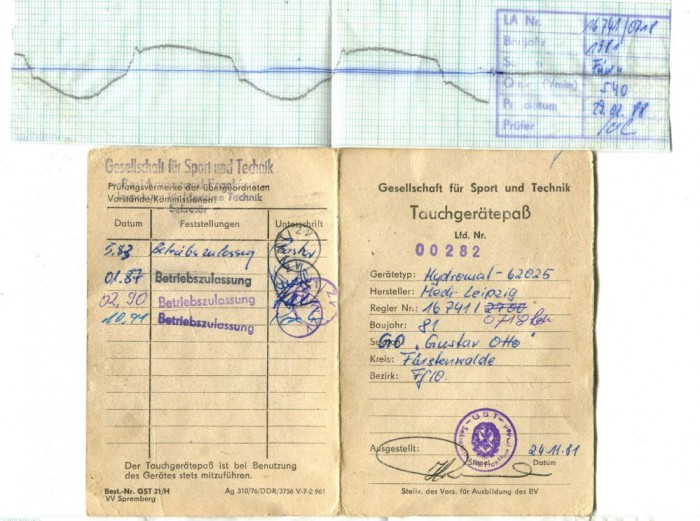 LA Nr. 16741/0718
Baujahr 1981
Fürw
540
Prüfdatum 22.02.88
Prüfer
Gesellschaft für Sport und Technik
Prüfungsvermerke der übergeordneten
Vorstände/Kommissionen:
Technik
Sekretär
Datum Feststellungen Unterschrift
5.83 Betriebszulassung
01.87 Betriebszulassung
02.90 Betriebszulassung
10.91 Betriebszulassung
Der Tauchgerätepaß ist bei Benutzung
des Gerätes stets mitzuführen.
Best.-Nr. GST 31/H Ag 310/76/DDR/3756 V-7-2 961
VV Spremberg
Gesellschaft für Sport und Technik
Tauchgerätepaß
Lfd. Nr.
00282
Gerätetyp: Hydromat-62025
Hersteller: Medi Leipzig
Regler Nr.: 16741/2700
0718
Baujahr: 81
GO "Gustav Otto"
Kreis: Fürstenwalde
Bezirk: Ff/O.
GST
Ausgestellt: 24.11.81
Stempel Datum
Stellv. des Vors. für Ausbildung des BV